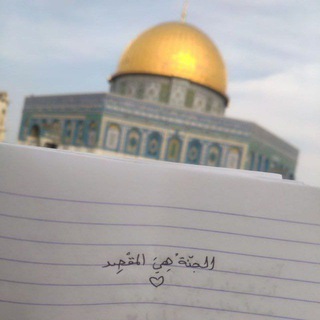 الجنّةُ هِيَ المَقْصِد
♡